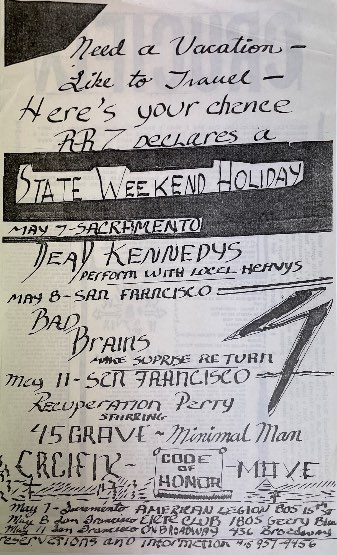 Need a Vacation –
Like to Travel –
Here's your chence
RRZ DECLARES a
STATE WEEKEND HOLIDAY
MAY 7-SACRAMENTO
DEAD KENNEDYS
PERFORM WITH LOCEL HEAVYS
MAY 8-SAN FRANCISCO
BAD
BRAINS
MAKE SUPRISE RETURN
May 11-SCN FRANCISCO
Recuperation Perty
STARRING
45 GRAVE ~ Minimal Man
CRCIFIX- CODE OF HONOR -MOVE
May 7-Sacramento AMERICAN LEGION BOS 15th
May 8 San Francisco ELITE CLUB 1805 Geery
May 11 San Francisco ON BROADWAY 435 Broadway
reservetions and information 415 937-7456